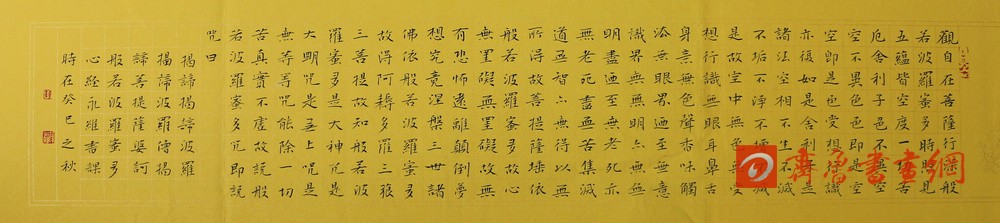 觀自在菩薩行深般
若波羅蜜多時照見
五蘊皆空度一切苦
厄舍利子色不異空
空不異色色即是空
空即是色受想行識
亦復如是舍利子是
諸法空相不生不滅
不垢不淨不增不減
是故空中無色無受
想行識無眼耳鼻舌
身意無色聲香味觸
法無眼界迺至無意
識界無無明亦無無
明盡迺至無老死亦
無老死盡無苦集滅
道無智亦無得以無
所得故菩提薩埵依
般若波羅蜜多故心
無罣礙無罣礙故無
有恐怖遠離顛倒夢
想究竟涅槃三世諸
佛依般若波羅蜜多
故得阿耨多羅三藐
三菩提故知般若波
羅蜜多是大神咒是
大明咒是無上咒是
無等等咒能除一切
苦真實不虛故說般
若波羅蜜多咒即說
咒曰
揭諦揭諦波羅
揭諦波羅僧揭
諦菩提薩婆訶
般若波羅蜜多
心經永雅書課
時在癸巳之秋
齊魯書畫網